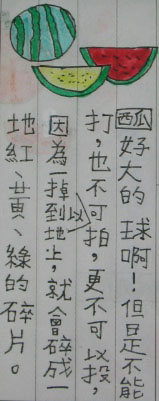 西瓜好大的球啊！但是不能
打，也不可以拍，更不可以投，
因為一掉到地上，就會碎成一
地紅、黃、綠的碎片。